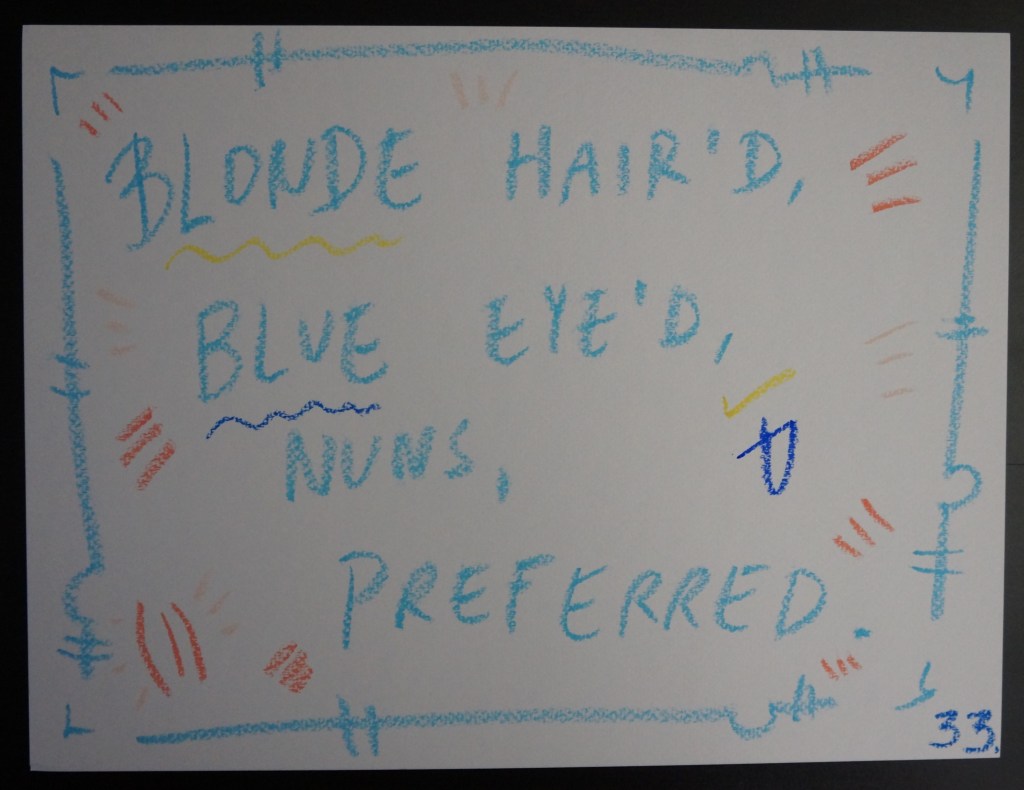 BLONDE HAIR'D,
BLUE EYE'D,
NUNS,
PREFERRED.
33